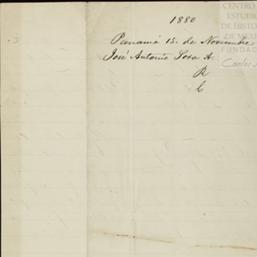 1880
Panamá 15 de Noviembre
José Antonio Sosa A.
R
C
CENTRO
ESTUDI
DE HISTO
DE MEXI
FUNDAC
Carlos